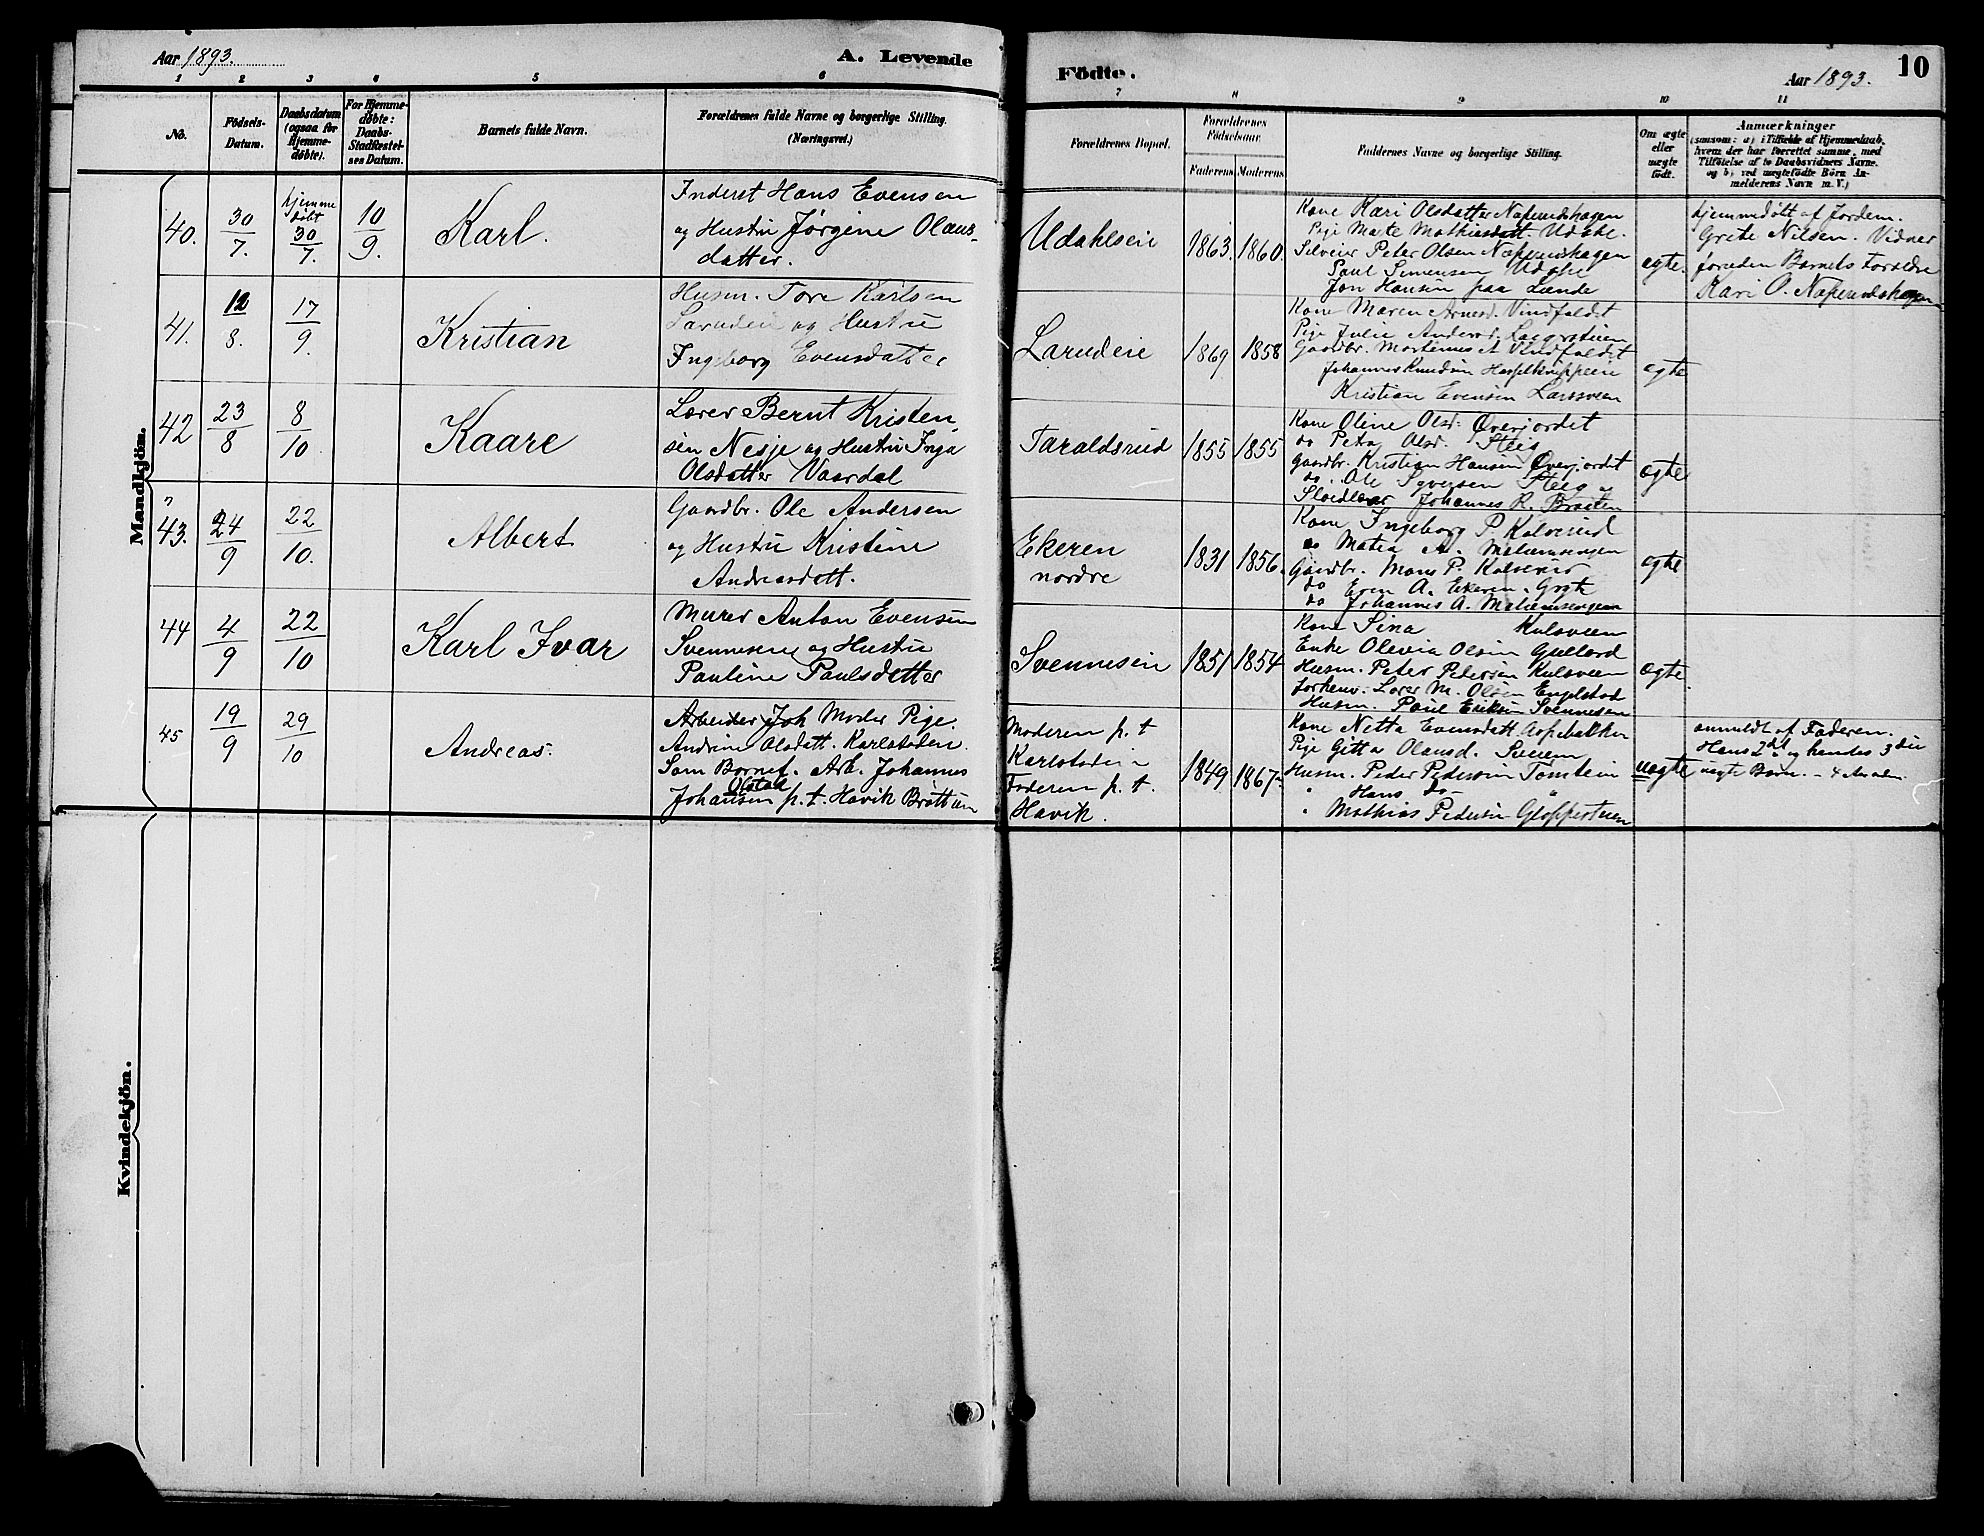 Aar 1893.
A. Levende
Födte.
Aar 1893.
10
1 2 3 4 5 6 7 8 9 10 11
No.
Födsels-
Datum.
Daabsdatum
(ogsaa for
Hjemme-
döbte).
For Hjemme-
döbte:
Daabs-
Stadfæstel-
ses Datum.
Barnets fulde Navn.
Forældrenes fulde Navne og borgerlige Stilling.
(Næringsvei.)
Forældrenes Bopæl.
Forældrenes
Födselsaar.
Faderens.
Moderens.
Faddernes Navne og borgerlige Stilling.
Om ægte
eller
uægte
födt.
Anmærkninger
(saasom: a) i Tilfælde af Hjemmedaab,
hvem der har forrettet samme, med
Tilföielse af to Daabsvidners Navne,
og b) ved uægtefödte Börn An-
melderens Navn m. V.)
Mandkjön.
40.
30
7.
hjemme
døbt
30
7.
10
9.
Karl.
Inderst Hans Evensen
og Hustru Jørgine Olaus-
datter.
Udahlseie
1863.
1860.
Kone Kari Olsdatter Næperudshagen
Pige Marte Mathiasdatt. Udahl.
Selveier Peter Olsen Næperudshagen
Paul Simensen Udahl
Jon Hansen paa Lunde
ægte.
hjemmedøbt af Jordem.
Grete Nilsen. Vidner
foruden Barnets Forældre
Kari O. Næperudshagen
41.
12
8.
17
9.
Kristian
Husm. Tore Karlsen
Larudeie og Hustru
Ingeborg Evensdatter
Larudeie
1869
1858
Kone Maren Arnesd. Vindfaldet
Pige Julie Andersd.
Gaardbr. Martinus A Vindfaldet
Johannes Knudsen
Kristian Evensen Larsveen
ægte
42
23
8
8
10
Kaare
Lærer Bernt Kristen-
sen Nesje og Hustru Inga
Olsdatter Vaardal
Taraldsrud
1855
1855
Kone Oline Olsd. Øverjordet
do Petra Olsd. Steig
Gaardbr. Kristian Hansen Øverjordet
do. Ole Syversen Steig og
Sløidlærer Johannes R. Braaten
ægte
"
43.
24
9
22
10.
Albert
Gaardbr. Ole Andersen
og Hustru Kristine
Andreasdatt.
Ekeren
nordre
1831
1856.
Kone Ingeborg P Kalverud
do Matea A.
Gaardbr. Mons P. Kalverud
do Even A. Ekeren
do Johannes A.
ægte
44
4
9
22
10
Karl Ivar
Murer Anton Evensen
Svenneseie og Hustru
Pauline Paulsdatter
Svenneseie
1851
1854
Kone Sina Kulsveen
Enke Olivia Olsen Gullord
Husm. Peter Pedersen Kulsveen
Forhenv. Lærer M. Olsen Engelstad
Husm. Paul Eriksen Svenneseie
ægte.
45
19
9
29
10
Andreas.
Arbeider Joh Moder Pige
Andrine Olsdatt. Karlstadeie.
Som Barnef. Arb. Johannes
Olstad
Johansen p. t. Havik Brøttum
Moderen p. t
Karlstadeie
Faderen p. t.
Havik.
1849
1867.
Kone Netta Evensdatt Aspebakken
Pige Gitta Olausd. Sveen
Husm. Peder Pedersen Tomtein
" Hans do "
" Mathias Pedersen Gloppertuen
uægte
anmeldt af Faderen.
Hans 2det og hendes 3die
uægte Barn.
Kvindekjön.